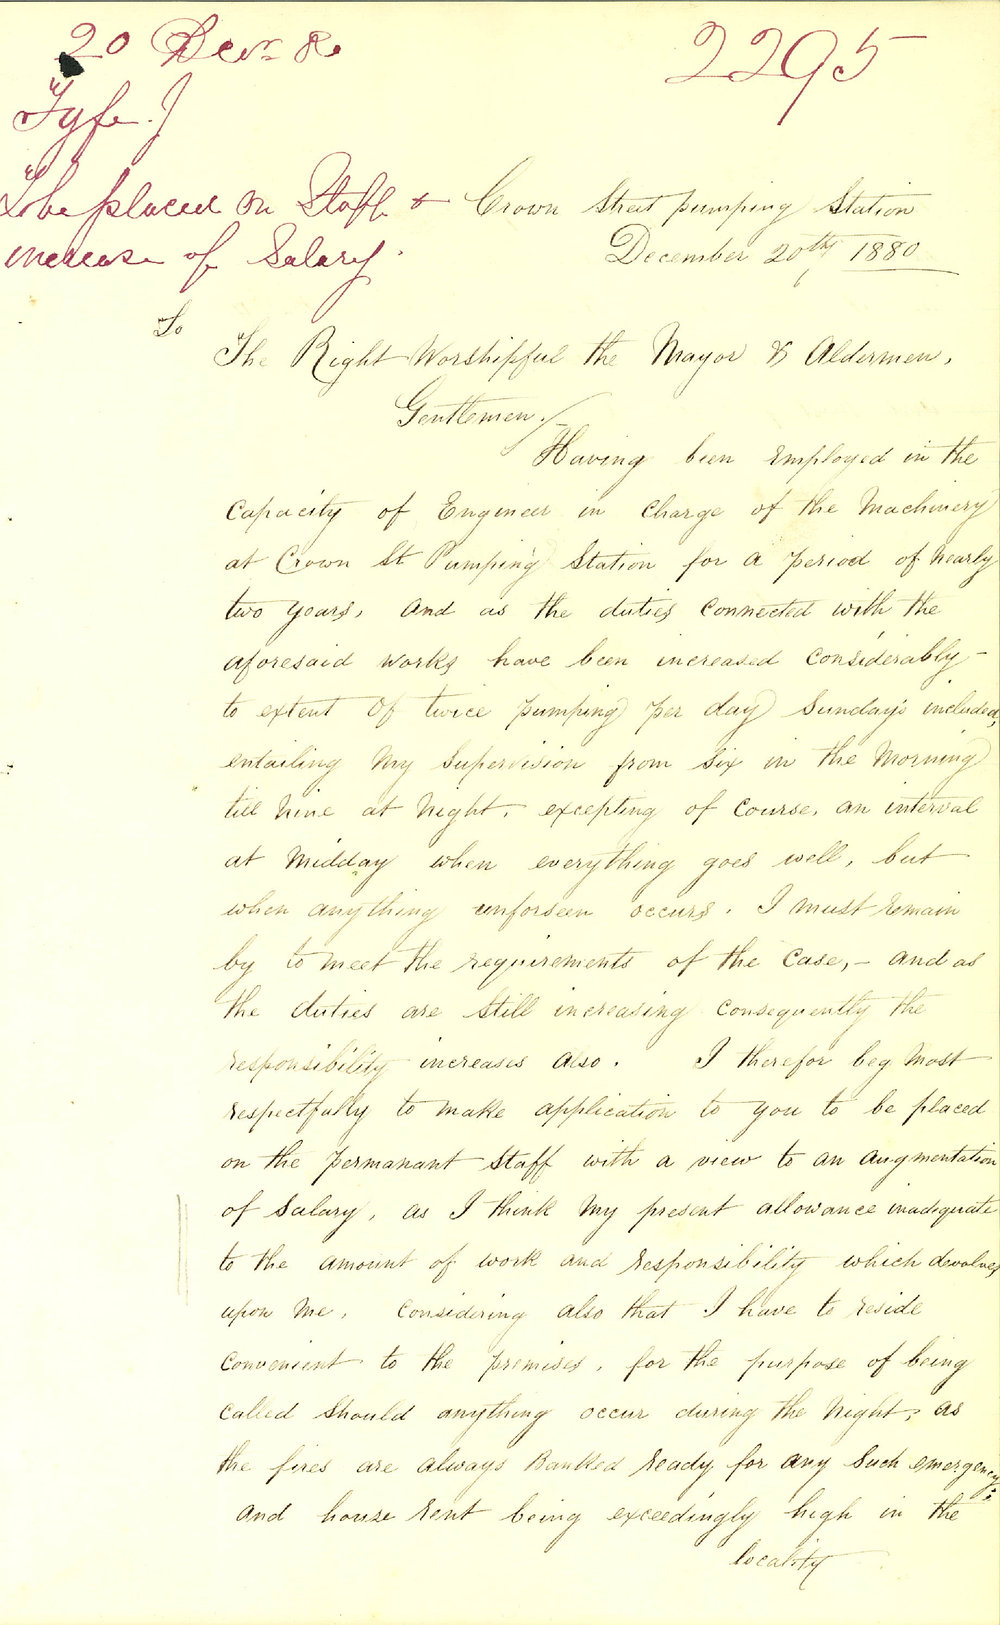 20 Decr 80
2295
Fyfe J
To be placed on Staff &
increase of Salary.
Crown Street Pumping Station
December 20th 1880
To
The Right Worshipful the Mayor & Aldermen,
Gentlemen,/
Having been employed in the
Capacity of Engineer in Charge of the Machinery
at Crown St Pumping Station for a period of nearly
two years, and as the duties connected with the
aforesaid works have been increased considerably –
to extent of twice pumping per day Sunday's included,
entailing my supervision from six in the morning
till nine at night, excepting of course, an interval
at midday when everything goes well, but
when anything unforseen occurs. I must remain
by to meet the requirements of the case, – and as
the duties are still increasing consequently the
responsibility increases also. I therefor beg most
respectfully to make application to you to be placed
on the permanant staff with a view to an augmentation
of salary, as I think my present allowance inadequate
to the amount of work and responsibility which devolves
upon me, considering also that I have to reside
convenient to the premises, for the purpose of being
called should anything occur during the night; as
the fires are always Banked ready for any such emergency:
and house rent being exceedingly high in the
locality